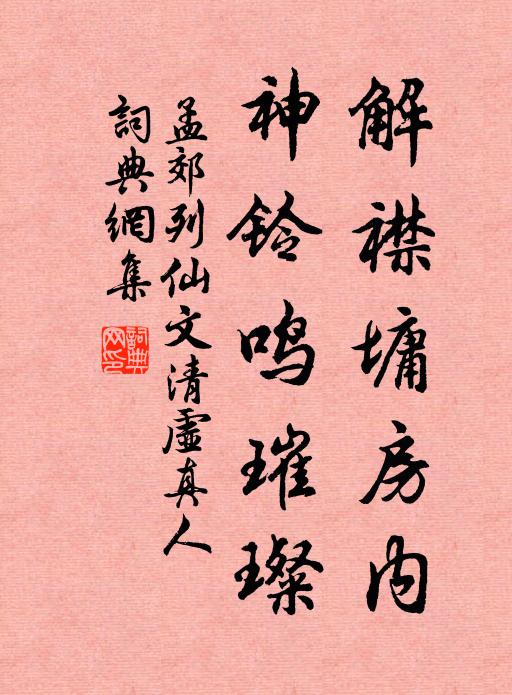 解襟墉房内
神铃鸣璀璨
孟郊列仙文清虚真人
詞典網集
詞典
网印